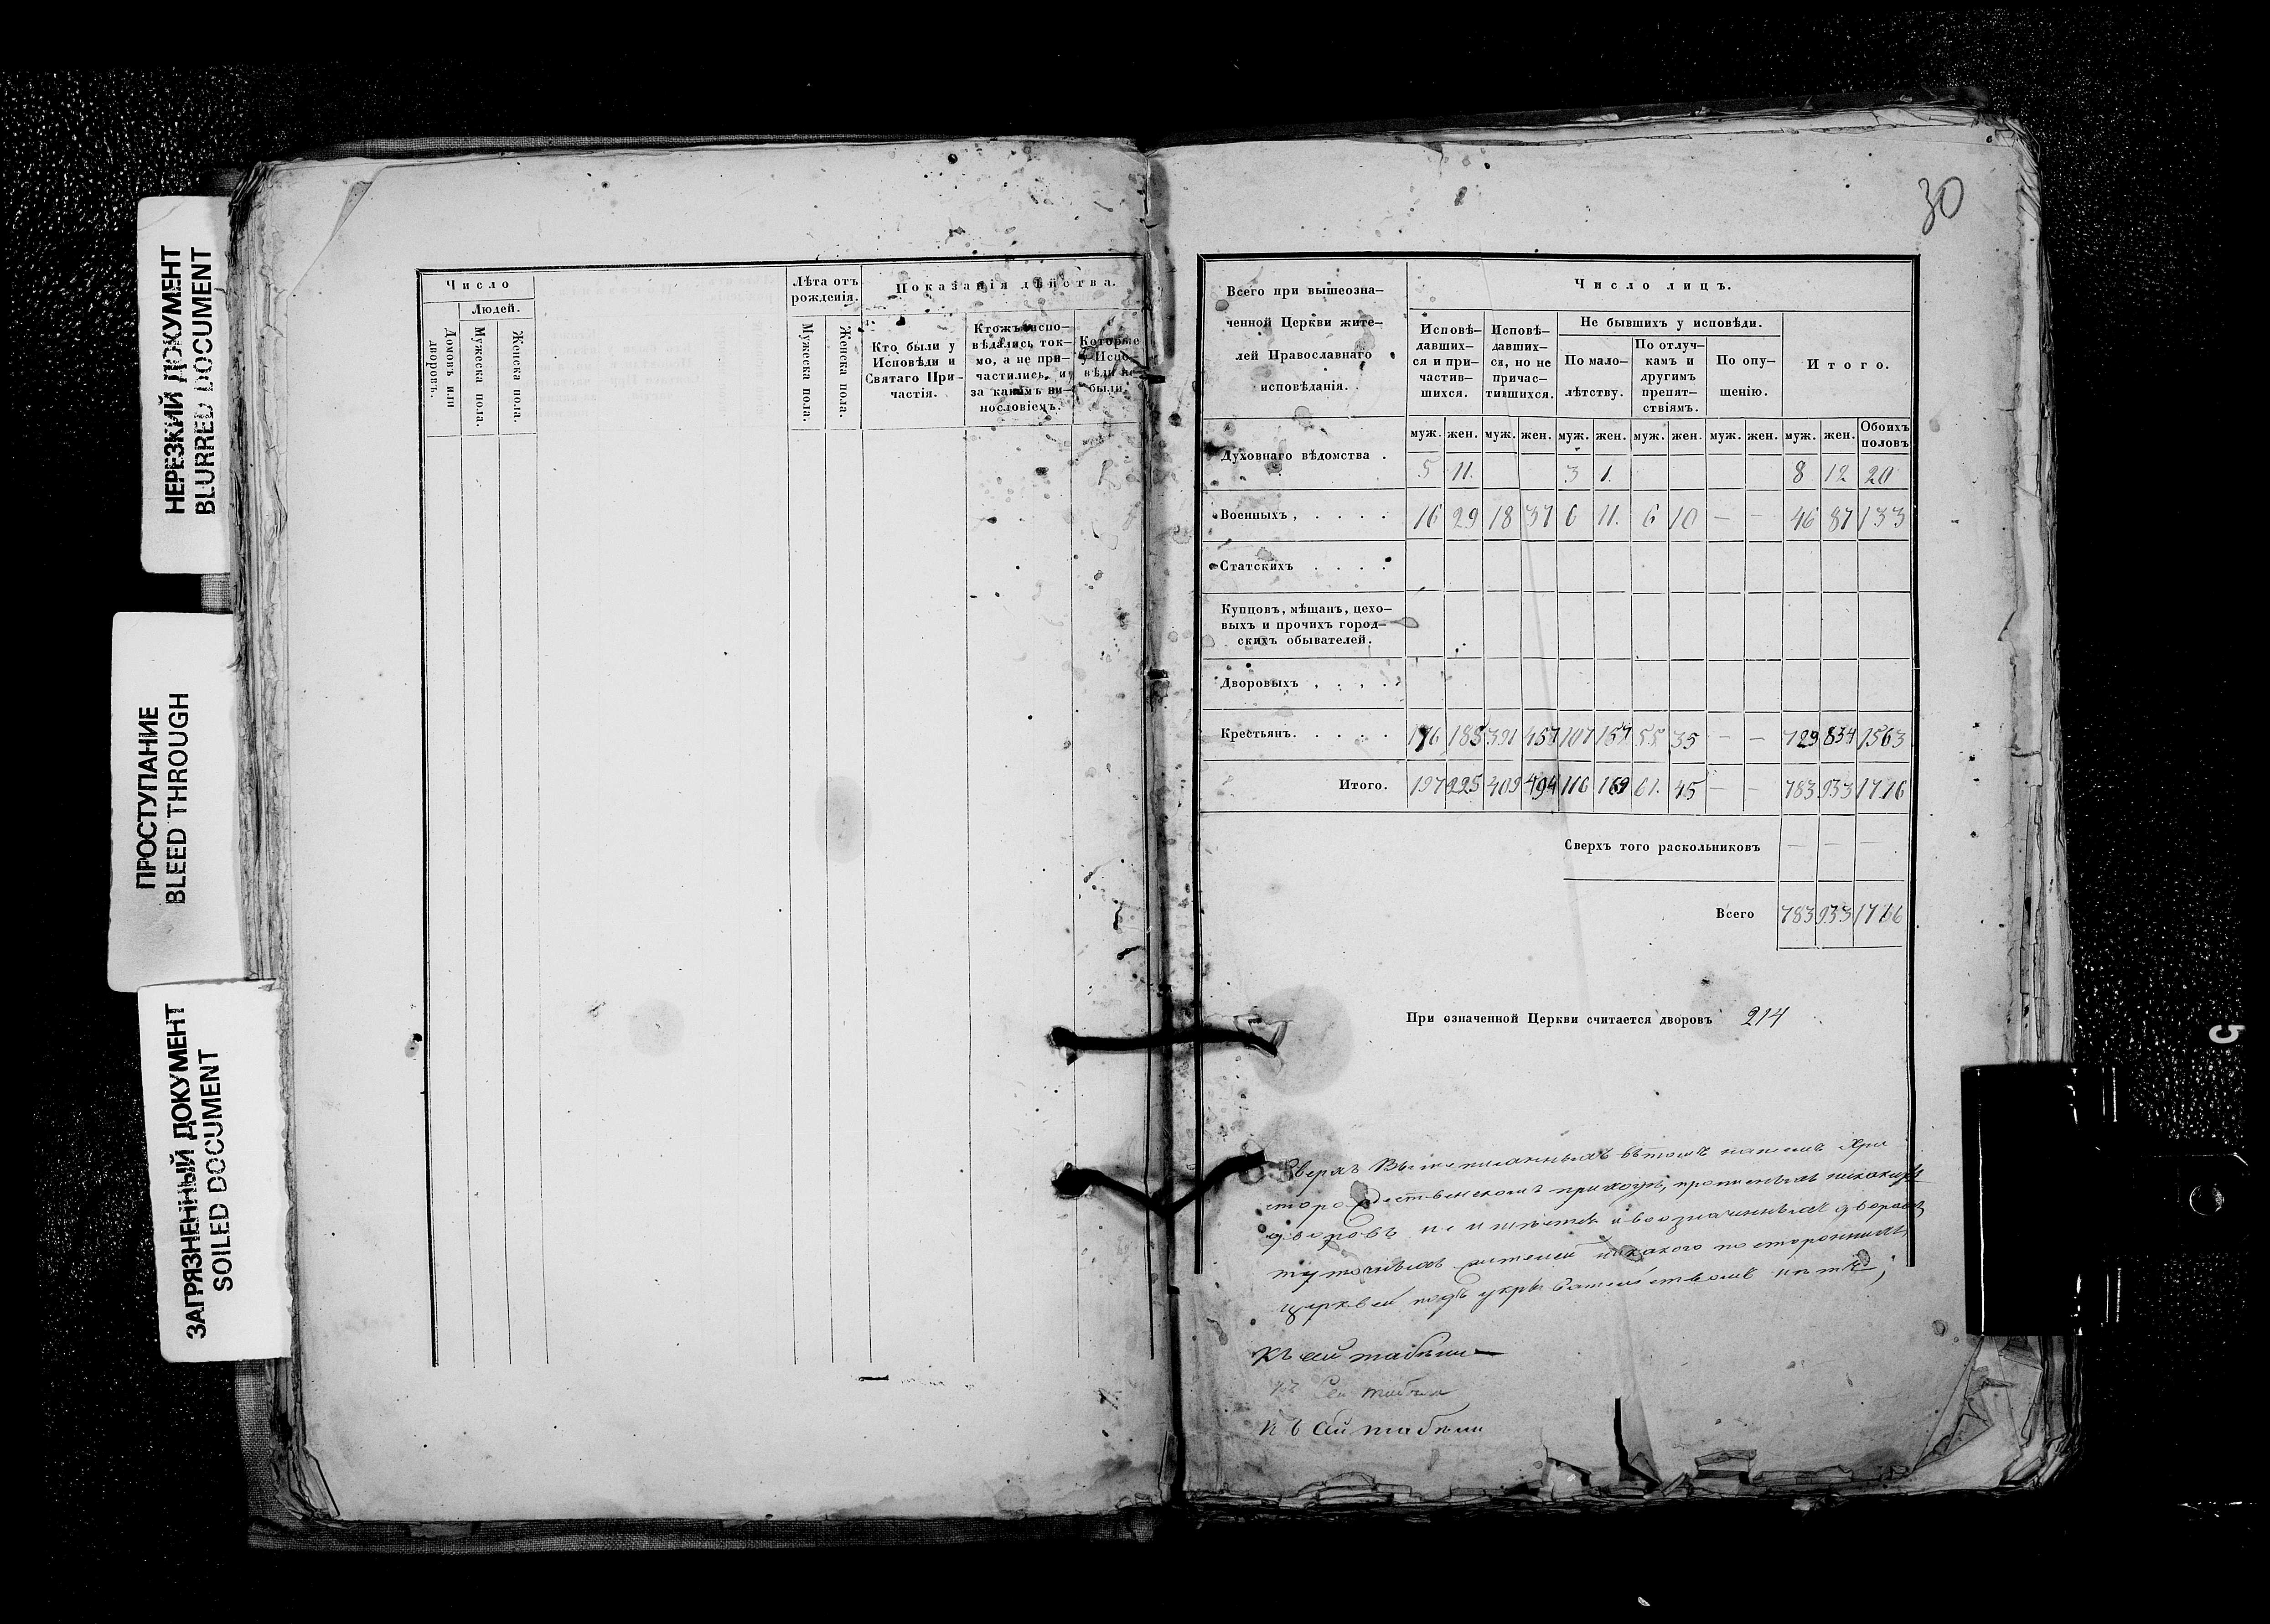 НЕРЕЗКИЙ ДОКУМЕНТ
BLURRED DOCUMENT
ПРОСТУПАНИЕ
BLEED THROUGH
ЗАГРЯЗНЕННЫЙ ДОКУМЕНТ
SOILED DOCUMENT
Число
Людей.
Домовъ или дворовъ.
Мужеска пола.
Женска пола.
Лѣта отъ рожденія.
Мужеска пола.
Женска пола.
Показанія дѣйства.
Кто были у Исповѣди и Святаго Причастія.
Ктожъ исповѣдались токмо, а не причастились, и за какимъ винословіемъ.
Которые у Исповѣди не были.
30
Всего при вышеозна-
ченной Церкви жите-
лей Православнаго
исповѣданія.
Число лицъ.
Исповѣ-давших-ся и при-частив-шихся.
Исповѣ-давших-ся, но не причас-тившихся.
Не бывшихъ у исповѣди.
По мало-лѣтству.
По отлуч-камъ и другимъ препят-ствіямъ.
По опу-щенію.
Итого.
муж. жен. муж. жен. муж. жен. муж. жен. муж. жен. муж. жен. Обоихъ половъ
Духовнаго вѣдомства . 5 11. 3 1. 8 12 20
Военныхъ, . . . . 16 29 18 37 6 11. 6 10 — — 46 87 133
Статскихъ . . . .
Купцовъ, мѣщанъ, цехо-
выхъ и прочихъ город-
скихъ обывателей.
Дворовыхъ , . , .
Крестьянъ. . . . . 176 185 391 457 107 157 55 35 — — 729 834 1563
Итого. 197 225 409 494 116 169 61. 45 — — 783 933 1716
Сверхъ того раскольниковъ — — —
Всего 783 933 1716
При означенной Церкви считается дворовъ 214
Сверхъ Вышеписанныхъ вътомъ нашемъ Хри
сторождественскомъ приходѣ, прописныхъ никакихъ
дворовъ не имѣется ивоозначенныхъ дворахъ
жителей никакого посторонними
церквей подъ укрывательствомъ нѣтъ;
5